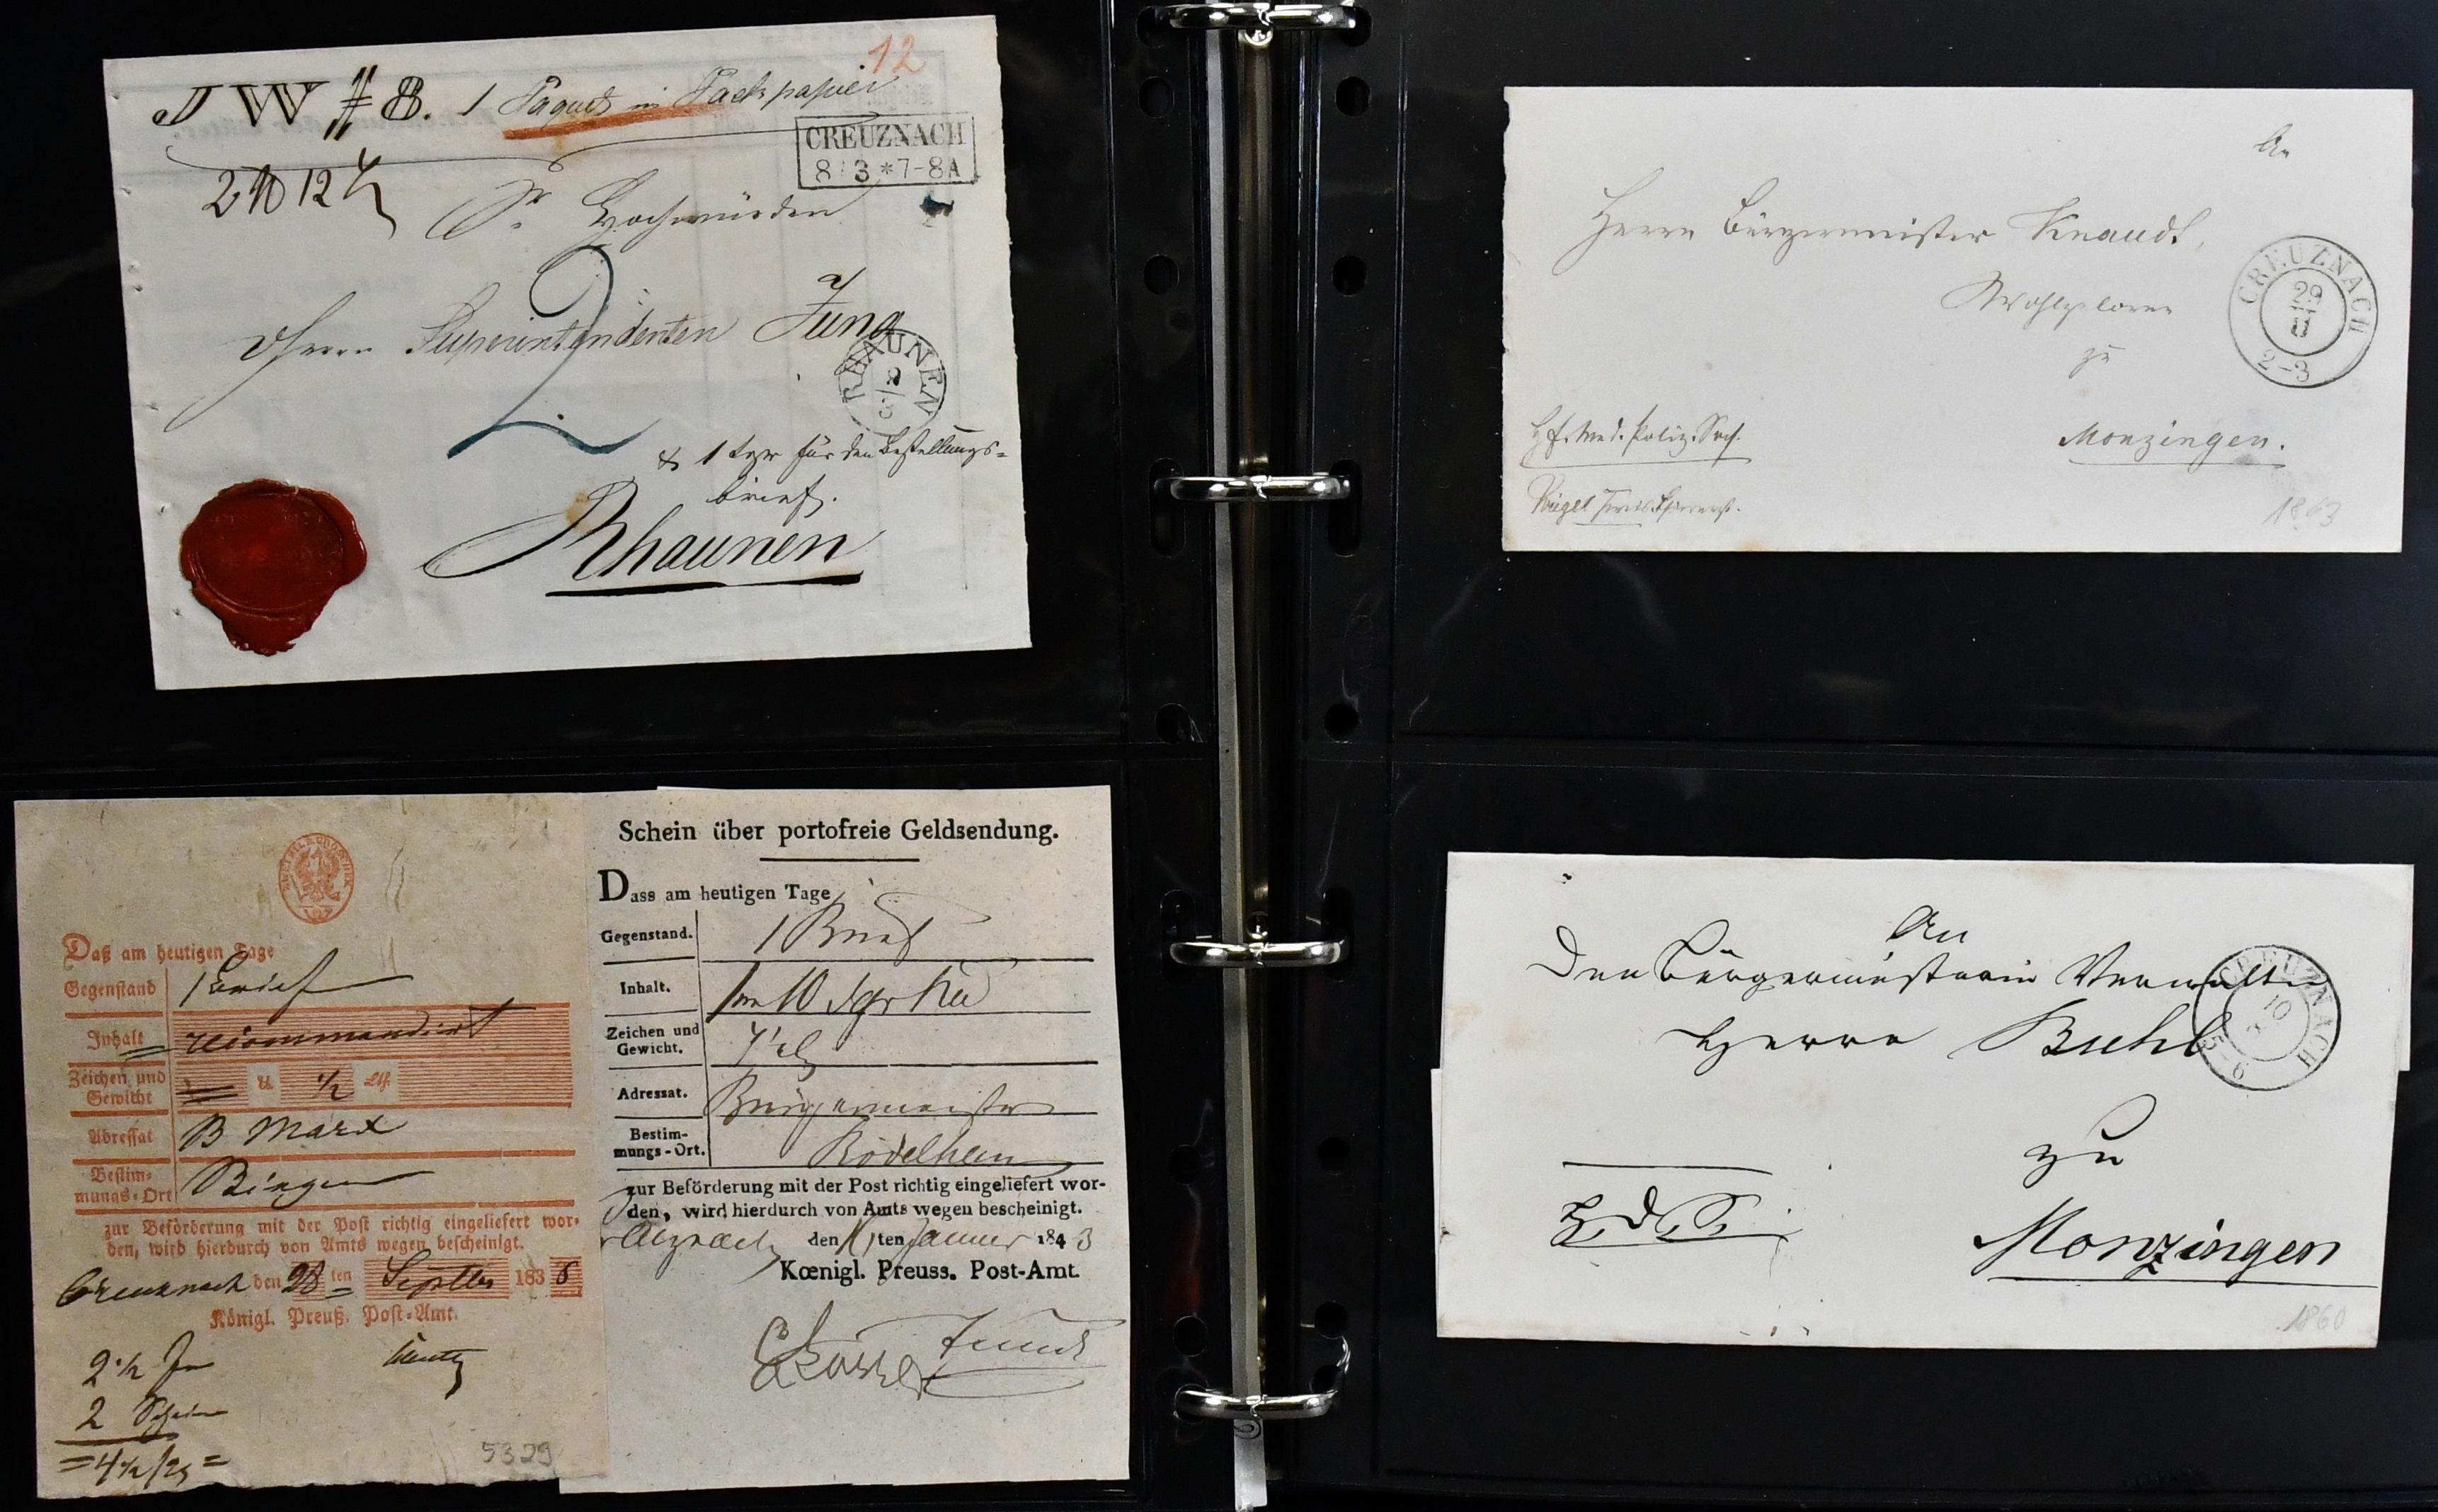 12
J W # 8. 1 Paquet in Packpapier
CREUZNACH
8/3 * 7-8A
2 ℔ 12
Sr Hochwürden
2
Herrn Superintendenten Jung
RHAUNEN
& 1 Sgr für den Bestellungs=
brief.
Rhaunen
Daß am heutigen Tage
Gegenstand 1 Brief
Inhalt recommandirt
Zeichen und Gewicht ½ Lth.
Adressat B Marx
Bestimmungs-Ort Bingen
zur Beförderung mit der Post richtig eingeliefert wor-
den, wird hierdurch von Amts wegen bescheinigt.
Creuznach den 28 ten Septbr 1836
Königl. Preuß. Post-Amt.
2½
2 Schein
=4½
5329
Schein über portofreie Geldsendung.
Dass am heutigen Tage
Gegenstand. 1 Brief
Inhalt. 10 Sgr
Zeichen und Gewicht.
Adressat. Bürgermeister
Bestim-
mungs-Ort. Rödelheim
zur Beförderung mit der Post richtig eingeliefert wor-
den, wird hierdurch von Amts wegen bescheinigt.
den ten Januar 1843
Kœnigl. Preuss. Post-Amt.
An
Herrn Bürgermeister Knaudt,
Wohlgeboren
zu
Monzingen.
CREUZNACH
29
2-3
1863
An
Den Bürgermeisterei Verwalter
Herrn Buhl
zu
Monzingen
CREUZNACH
10
5-6
1860